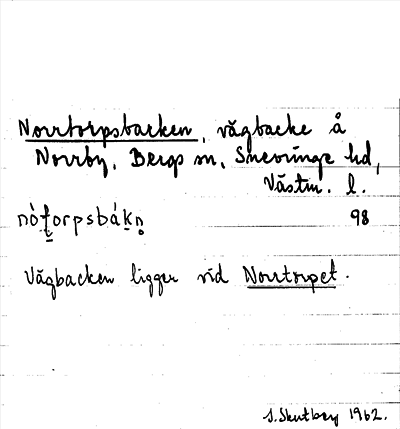 Norrtorpsbacken, vägbacke å
Norrby, Bergs sn, Snevringe hd,
Västm. l.
nò̀ṱorpsbákn̥ 98
Vägbacken ligger vid Norrtorpet.
S. Skutberg 1962.